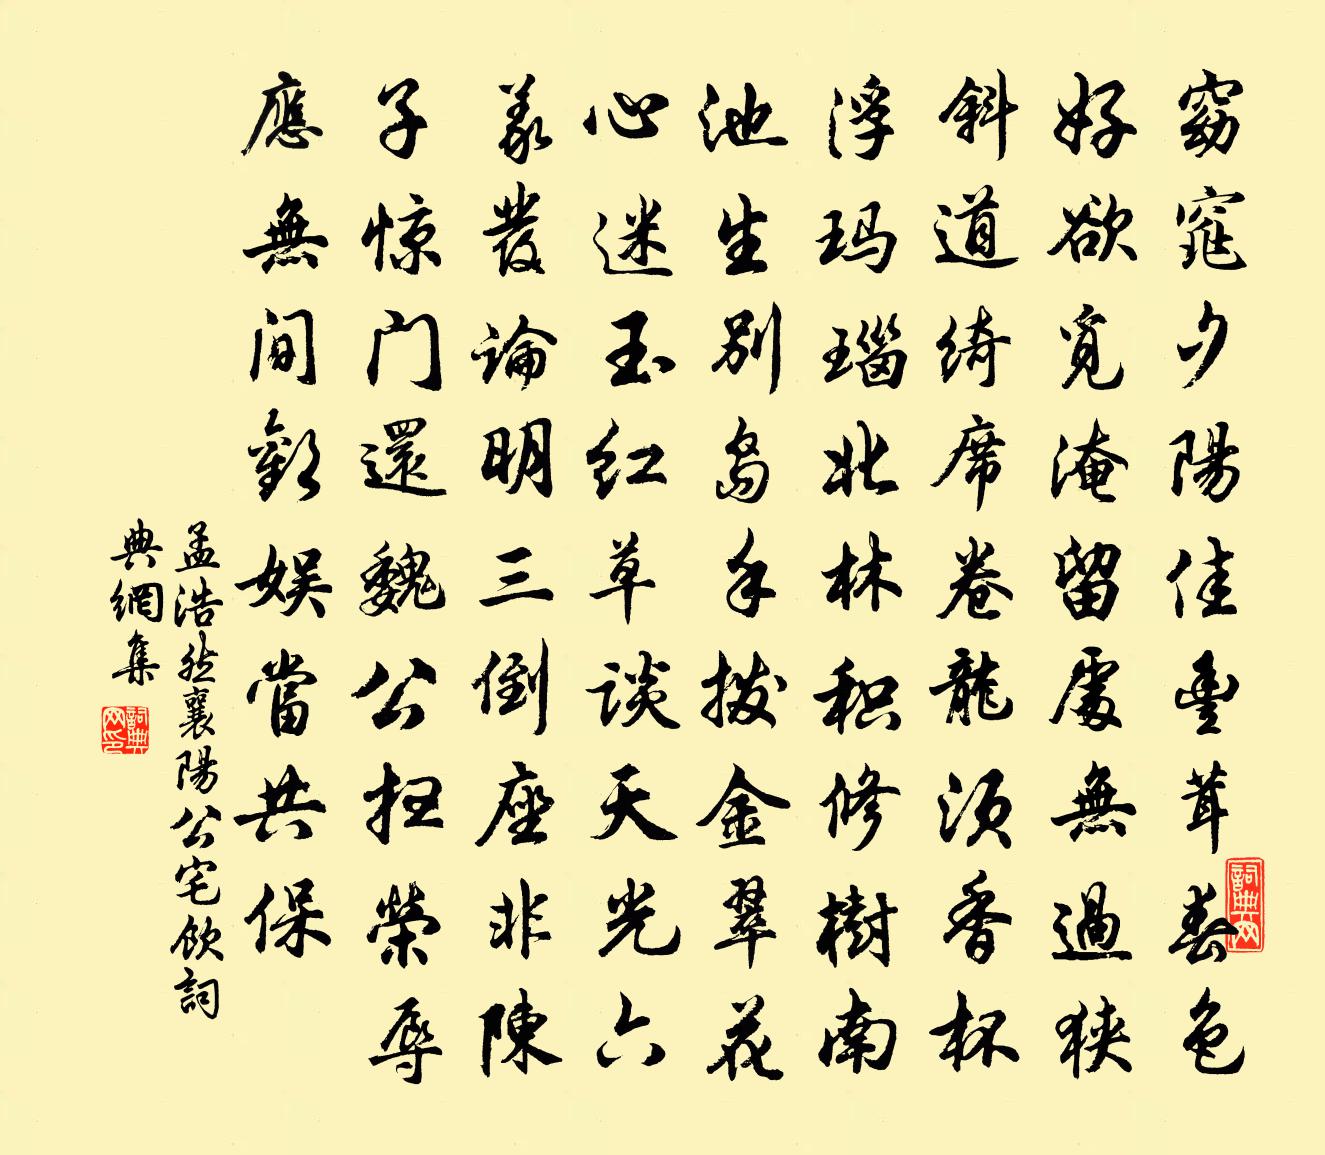 窈窕夕陽佳豐茸春色
好欲覓淹留處無過狹
斜道綺席卷龍须香杯
浮玛瑙北林积修樹南
池生别岛手撥金翠花
心迷玉红草谈天光六
義發論明三倒座非陳
子惊门還魏公扫榮辱
應無间歡娱當共保
孟浩然襄陽公宅飲詞
典網集
詞典网
詞典网印